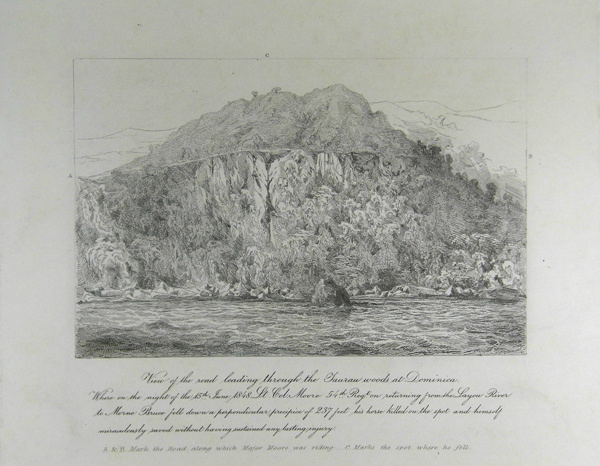 C
A
B
View of the road leading through the Taurau woods at Dominica.
Where on the night of the 15th June 1848. Lt Col. Moore 54th Regt on returning from the Layou River
to Morne Bruce fell down a perpendicular precipice of 237 feet his horse killed on the spot and himself
miraculously saved without having sustained any lasting injury.
A. & B. Mark the Road along which Major Moore was riding _ C. Marks the spot where he fell.